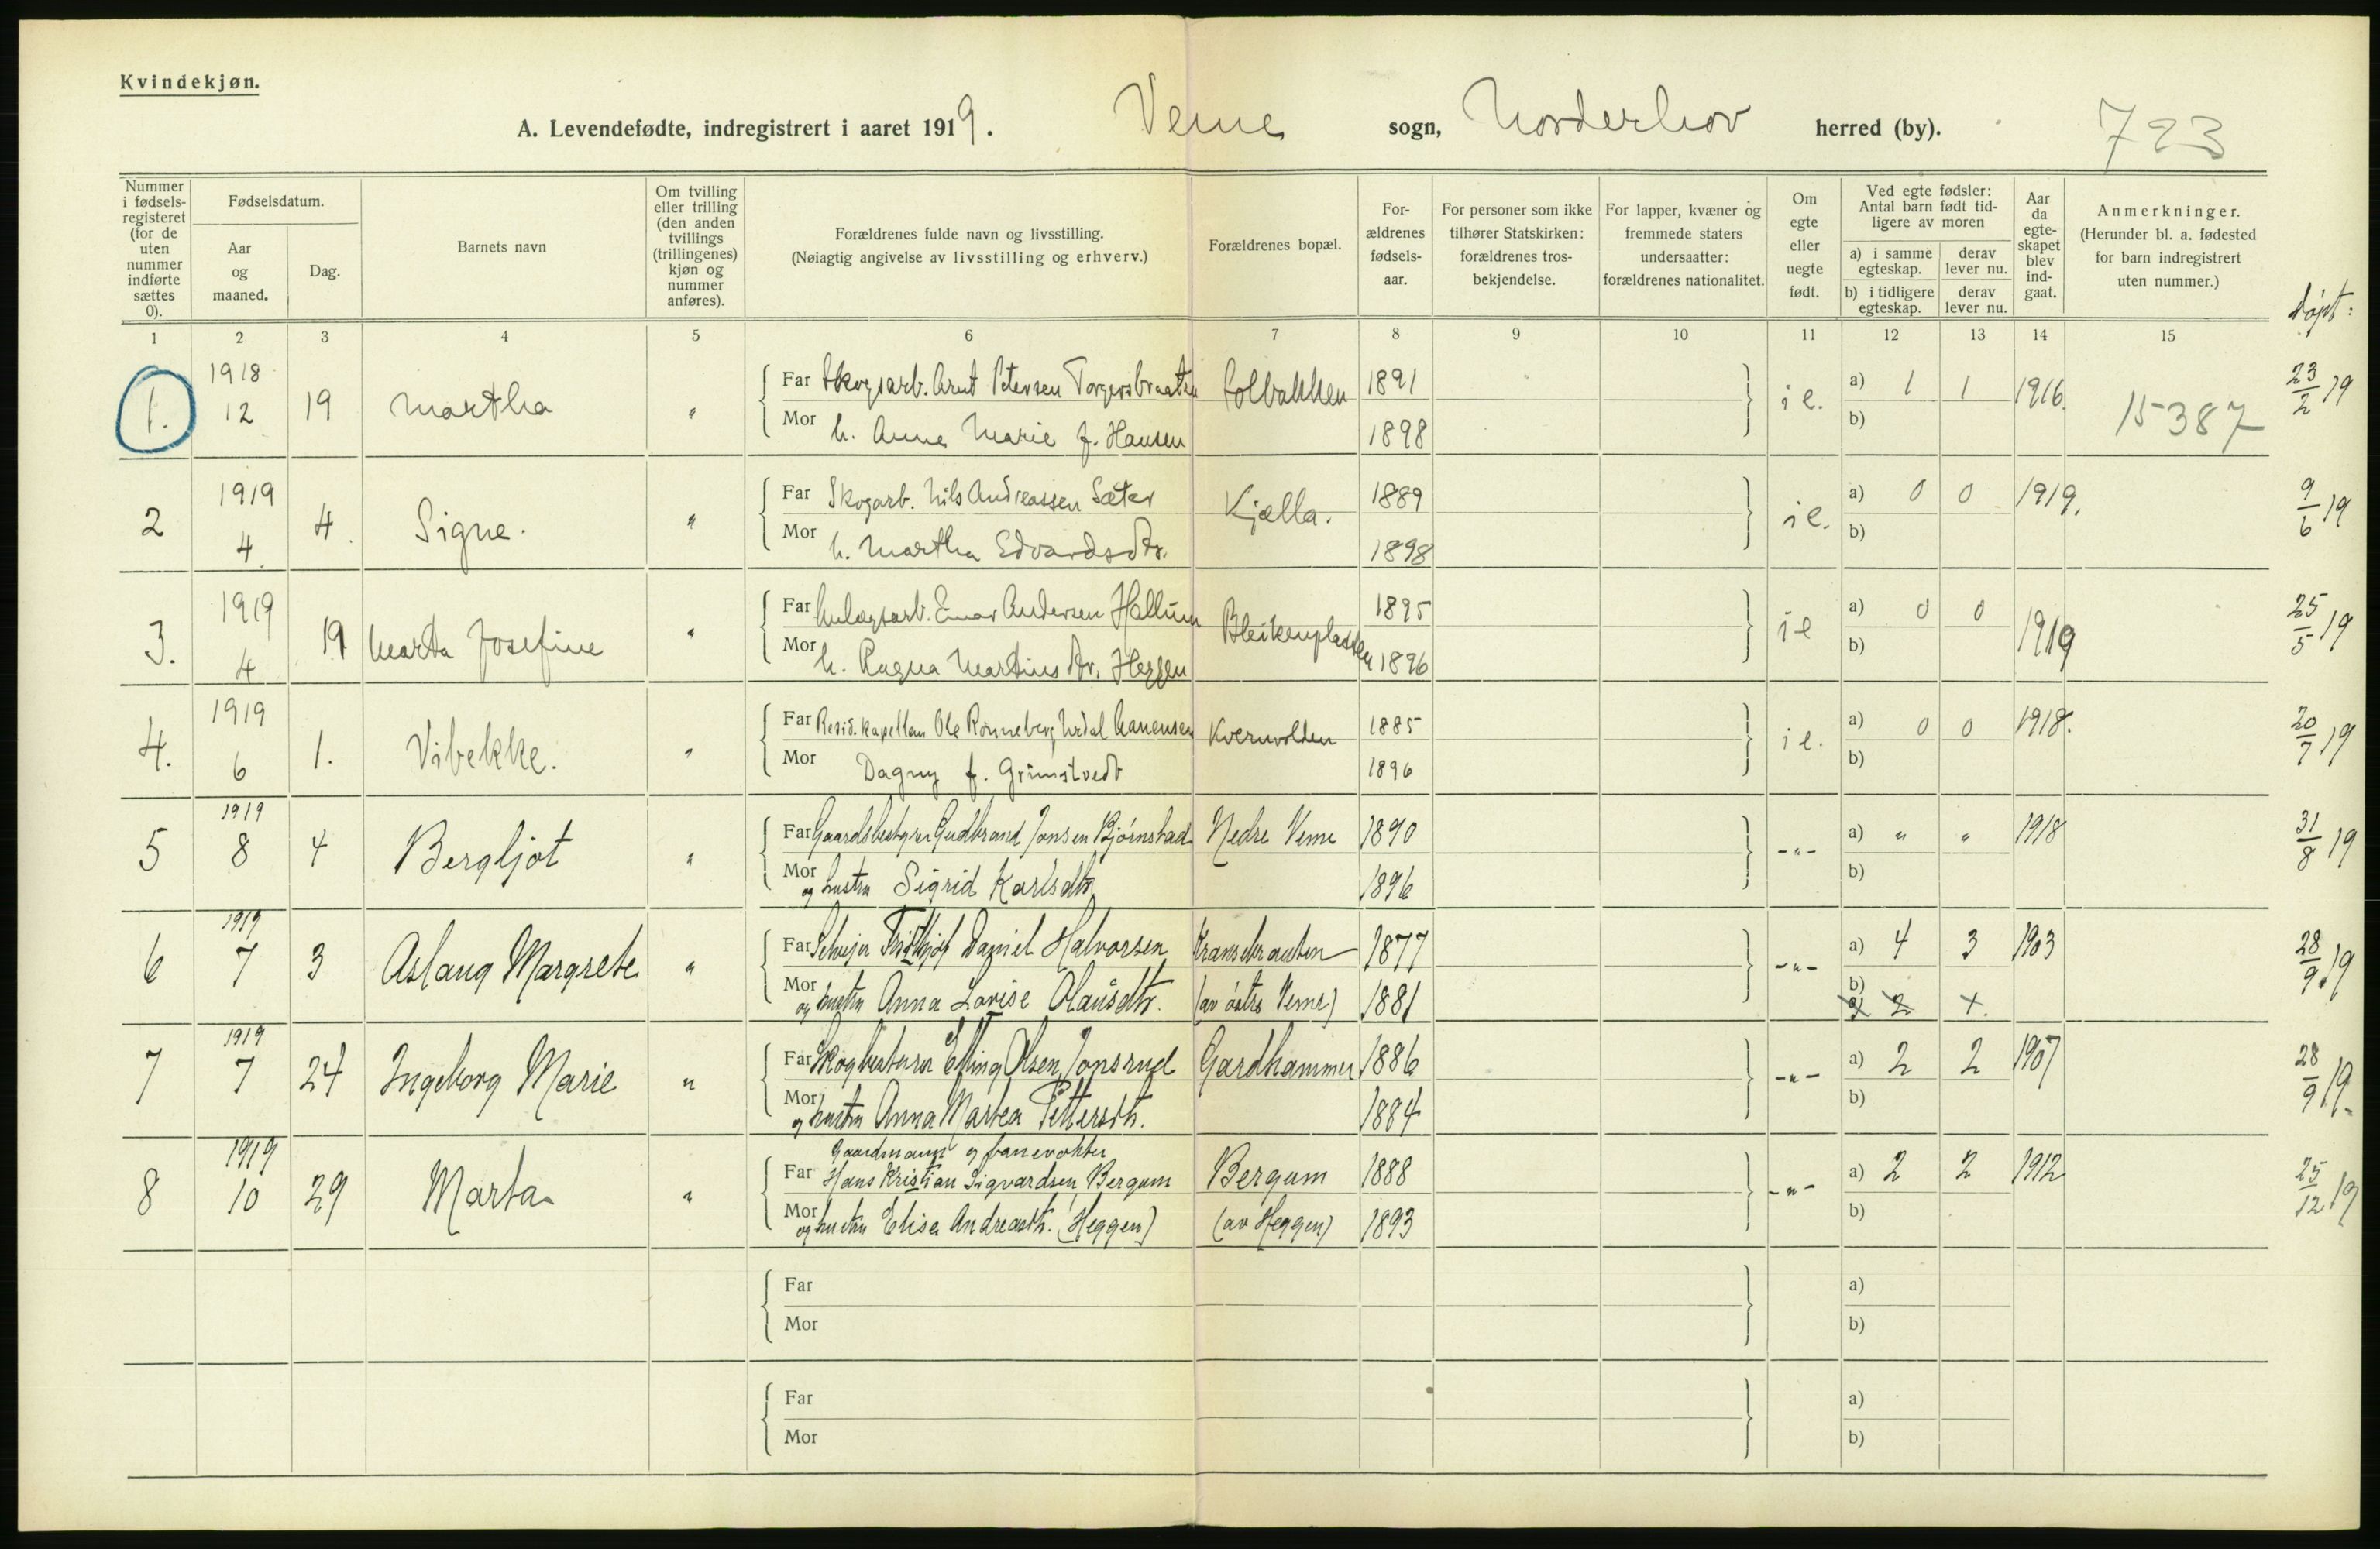 Kvindekjøn.
A. Levendefødte, indregistrert i aaret 1919. Veme sogn, Norderhov herred (by). 723
Nummer i fødsels-registeret (for de uten nummer indførte sættes 0).
Fødselsdatum.
Aar og maaned.
Dag.
Barnets navn
Om tvilling eller trilling (den anden tvillings (trillingenes) kjøn og nummer anføres).
Forældrenes fulde navn og livsstilling.
(Nøiagtig angivelse av livsstilling og erhverv.)
Forældrenes bopæl.
For-ældrenes fødsels-aar.
For personer som ikke tilhører Statskirken: forældrenes tros-bekjendelse.
For lapper, kvæner og fremmede staters undersaatter: forældrenes nationalitet.
Om egte eller uegte født.
Ved egte fødsler: Antal barn født tid-ligere av moren
a) i samme egteskap. derav lever nu.
b) i tidligere egteskap. derav lever nu.
Aar da egte-skapet blev ind-gaat.
Anmerkninger.
(Herunder bl. a. fødested for barn indregistrert uten nummer.)
døpt:
1 2 3 4 5 6 7 8 9 10 11 12 13 14 15
1. 1918 12 19 Martha " Far Skogsarb. Arnt Petersen Torgersbraaten Solbakken 1891 i e. a) 1 1 1916. 15387 23/2 19
Mor h. Anna Marie f. Hansen 1898 b)
2 1919 4. 4. Signe. " Far Skogarb. Nils Andreassen Sæter Kjælla. 1889 i e. a) 0 0 1919. 9/6 19
Mor h. Martha Edvardsdtr. 1898 b)
3. 1919 4 19 Marta Josefine " Far Anlægsarb. Einar Andersen Hallum Bleikenplassen 1895 i e a) 0 0 1919 25/5 19
Mor h. Ragna Martinsdtr. Heggen 1896 b)
4. 1919 6 1. Vibekke. " Far Resid. kapellan Ole Rønneberg Urdal Kvernvolden 1885 i e. a) 0 0 1918. 20/7 19
Mor Dagny f. Grimstvedt 1896 b)
5 1919 8 4 Bergljot " Far Gaardsbestyrer Gudbrand Jonsen Bjørnstad Nedre Veme 1890 -"- a) " " 1918 31/8 19
Mor og hustru Sigrid Karlsdtr. 1896 b)
6 1919 7 3 Aslaug Margrete " Far Selveier Fridthjof Daniel Halvorsen 1877 -"- a) 4 3 1903 28/9 19
Mor og hustru Anna Lovise Olausdtr. (av østre Veme) 1881 b)
a) 2 x.
7 1919 7 24 Ingeborg Marie " Far Skogbestyrer Elling Olsen Jonsrud Gardhammer 1886 -"- a) 2 2 1907 28/9 19.
Mor og hustru Anna Martea Pettersdtr. 1884 b)
8 1919 10 29 Marta " Gaardmand og banevokter
Far Hans Kristian Sigvardsen Bergum Bergum 1888 -"- a) 2 2 1912 25/12 19
Mor og hustru Elise Andreasdtr. (Heggen) (av Heggen) 1893 b)
Far a)
Mor b)
Far a)
Mor b)